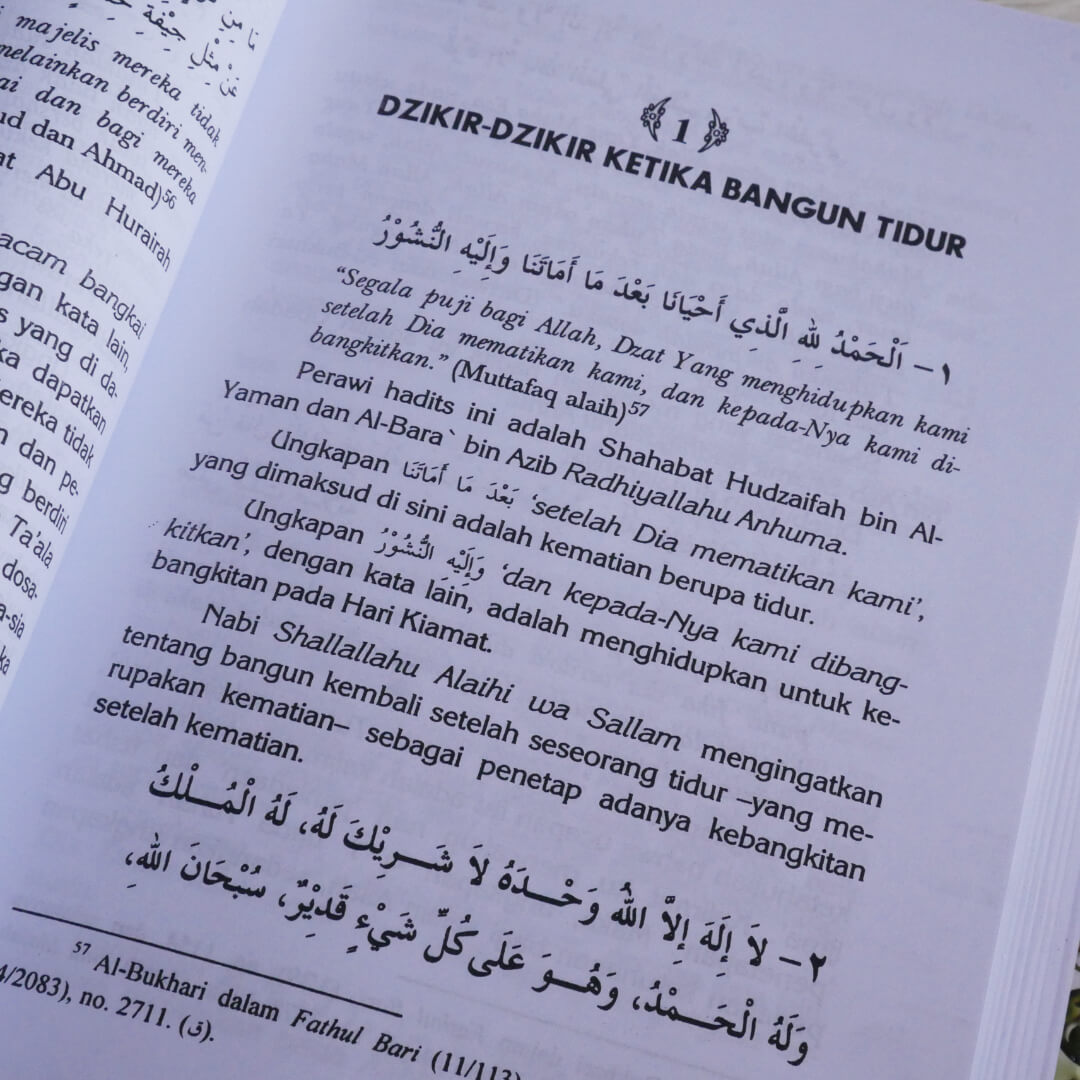 مَا مِنْ
عَنْ مِثْلِ جِيْفَةِ
majelis mereka tidak
melainkan berdiri men-
ai dan bagi mereka
ud dan Ahmad)56
at Abu Hurairah
acam bangkai
gan kata lain,
s yang di da-
ka dapatkan
ereka tidak
n dan pe-
g berdiri
Ta'ala
dosa-
a-sia
ka
1
DZIKIR-DZIKIR KETIKA BANGUN TIDUR
١- اَلْحَمْدُ لِلهِ الَّذِي أَحْيَانَا بَعْدَ مَا أَمَاتَنَا وَإِلَيْهِ النُّشُوْرُ
“Segala puji bagi Allah, Dzat Yang menghidupkan kami
setelah Dia mematikan kami, dan kepada-Nya kami di-
bangkitkan.” (Muttafaq alaih)57
Perawi hadits ini adalah Shahabat Hudzaifah bin Al-
Yaman dan Al-Bara` bin Azib Radhiyallahu Anhuma.
Ungkapan بَعْدَ مَا أَمَاتَنَا ‘setelah Dia mematikan kami’,
yang dimaksud di sini adalah kematian berupa tidur.
Ungkapan وَإِلَيْهِ النُّشُوْرُ ‘dan kepada-Nya kami dibang-
kitkan’, dengan kata lain, adalah menghidupkan untuk ke-
bangkitan pada Hari Kiamat.
Nabi Shallallahu Alaihi wa Sallam mengingatkan
tentang bangun kembali setelah seseorang tidur –yang me-
rupakan kematian– sebagai penetap adanya kebangkitan
setelah kematian.
٢- لاَ إِلَهَ إِلاَّ اللهُ وَحْدَهُ لاَ شَرِيْكَ لَهُ، لَهُ الْمُلْكُ
وَلَهُ الْحَمْدُ، وَهُوَ عَلَى كُلِّ شَيْءٍ قَدِيْرٌ، سُبْحَانَ اللهِ،
57 Al-Bukhari dalam Fathul Bari (11/113)
4/2083), no. 2711. (ق).